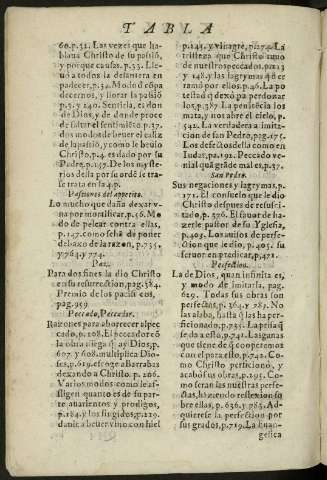 TABLA
60. p.32. Las vezes que ha-
blaua Christo de su passiō,
y porque causas. p.33. Lle-
uò a todos la delantera en
padecer, p.34. Modo de cōpa
decernos, y llorar la passiō
p.5. y 240. Sentirla, es don
de Dios, y de donde proce
de faltar el sentimiēto p.37.
dos modos de beuer el caliz
de la passiō, y como le beuio
Christo, p.4. es dado por su
Padre, p.157. De los myste-
rios della por su ordē se tra
ta en la 4.p.
Passiones del apetito.
Lo mucho que daña dexar v-
na por mortificar, p.56. Mo
do de pelear contra ellas,
p.147. Como se hã de poner
debaxo de la razon, p.735.
y 764. y 774.
Paz.
Para dos fines la dio Christo
en su resurrection, pag.584.
Premio de los pacificos,
pag.959
Peccado, Peccador.
Razones para aborrecer al pec
cado, p.108. El peccador cō
la obra niega q̃ ay Dios, p.
607. y 608. multiplica Dio-
ses, p.619. escoge a Barrabas
dexando a Christo. p.206.
Varios modos como le af-
fligen quanto es de su par-
te auarientos y prodigos,
p.184. y los sirgidos, p.129.
dan le a beuer vino con hiel
p.143. y vinagre, p.274. La
tristeza que Christo tuuo
de nuestros peccados, pa.123
y 148. y las lagrymas q̃ de
ramó por ellos, p.46. La po
testad q̃ dexò pa perdonar
los, p.387. La penitēcia los
mata, y nos abre el cielo, p.
542. La verdadera a imita-
cion de san Pedro, pag.175.
Los defectos della como en
Iudas, pa.192. Peccado ve-
nial quã grãde mal es, p.37.
San Pedro.
Sus negaciones y lagrymas, p.
171. El consuelo que le dio
Christo despues de resusci-
tado, p.376. El fauor de ha-
zerle pastor de su Yglesia,
p.409. Los auisos de perfec-
tion que le dio, p.405. su
feruor en predicar, p.471.
Perfection.
La de Dios, quan infinita es,
y modo de imitarla, pag.
629. Todas sus obras son
perfectas, p.364. y 785. No
las alaba, hasta q̃ las ha per-
ficionado, p.735. La prisa q̃
se da a ello, p.741. Las ganas
que tiene de q̃ cooperemos
con el para esto, p.742. Co-
mo Christo perficionò, y
acabò sus obras, p.195. Co-
mo seran las nuestras perfe-
ctas, haziendo reflexion so
bre ellas, p.636. y 785. Ad-
quierese la perfection por
sus grados, p.719. La Euan-
gelica